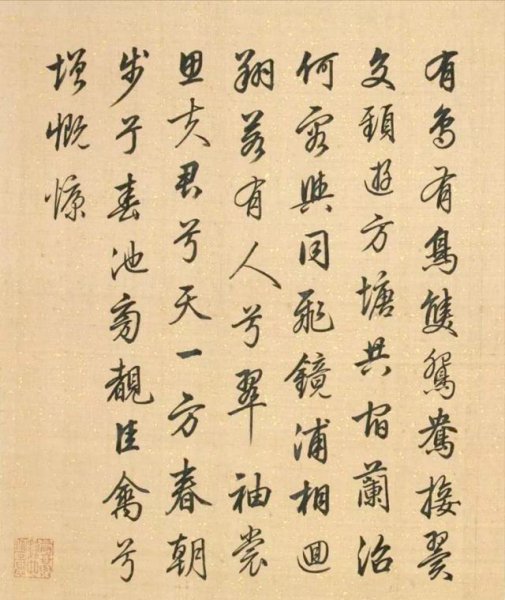 有鳥有鳥雙鴛鴦接翼
交頸遊方塘共宿蘭沼
何容與同飛鏡浦相囬
翔若有人兮翠袖裳
思夫君兮天一方春朝
步兮春池旁覩佳禽兮
增慨慷